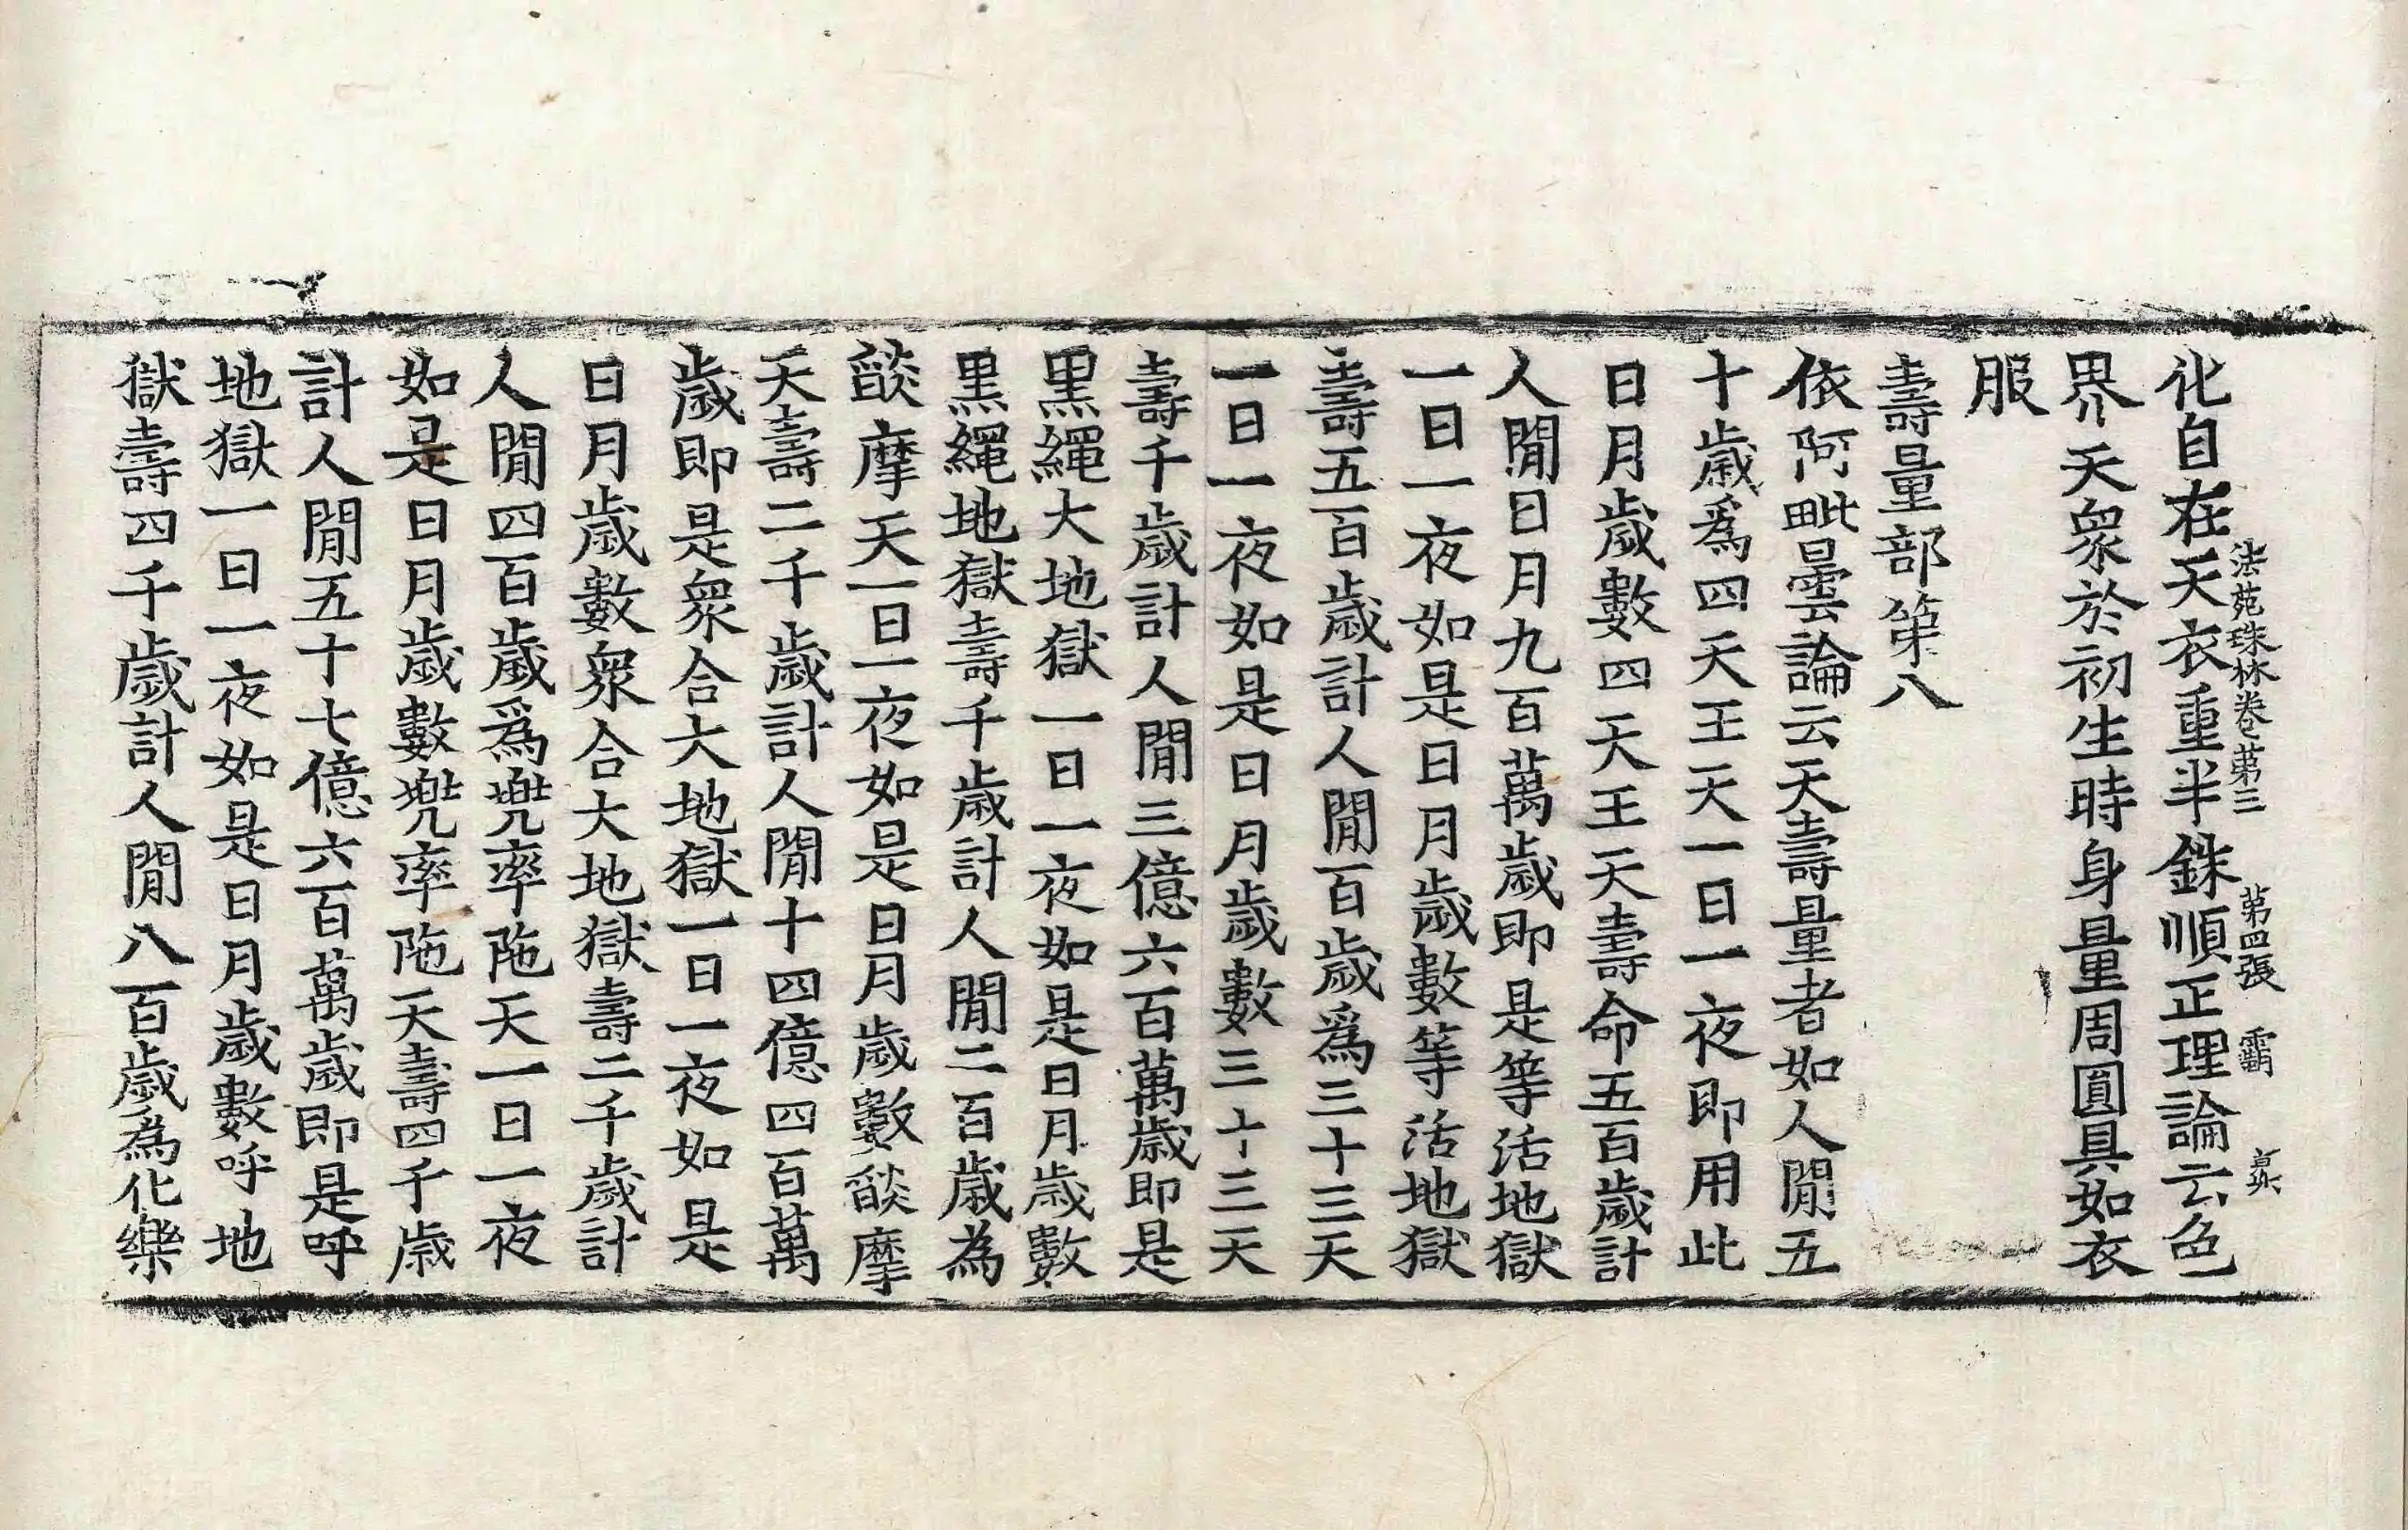 化自在天衣重半銖順正理論云色
法苑珠林卷第三 第四張 霸
界天衆於初生時身量周圓具如衣
服
壽量部第八
依阿毗曇論云天壽量者如人閒五
十歲爲四天王天一日一夜即用此
日月歲數四天王天壽命五百歲計
人閒日月九百萬歲即是等活地獄
一日一夜如是日月歲數等活地獄
壽五百歲計人閒百歲爲三十三天
一日一夜如是日月歲數三十三天
壽千歲計人閒三億六百萬歲即是
黒繩大地獄一日一夜如是日月歲數
黒繩地獄壽千歲計人閒二百歲為
燄摩天一日一夜如是日月歲數燄摩
天壽二千歲計人閒十四億四百萬
歲即是衆合大地獄一日一夜如是
日月歲數衆合大地獄壽二千歲計
人閒四百歲爲兠率陁天一日一夜
如是日月歲數兠率陁天壽四千歲
計人閒五十七億六百萬歲即是呼
地獄一日一夜如是日月歲數呼地
獄壽四千歲計人閒八百歲為化樂